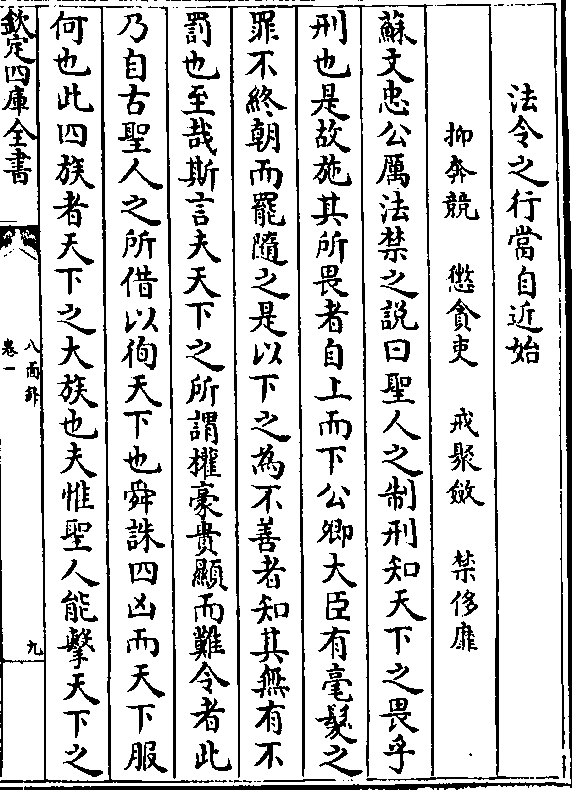 法令之行當自近始
抑奔競　懲貪吏　戒聚斂　禁侈靡
蘇文忠公厲法禁之說曰聖人之制刑知天下之畏乎
刑也是故施其所畏者自上而下公卿大臣有毫髮之
罪不終朝而罷隨之是以下之為不善者知其無有不
罰也至哉斯言夫天下之所謂權豪貴顯而難令者此
乃自古聖人之所借以徇天下也舜誅四凶而天下服
何也此四族者天下之大族也夫惟聖人能擊天下之
欽定四庫全書
八面鋒
卷一
九